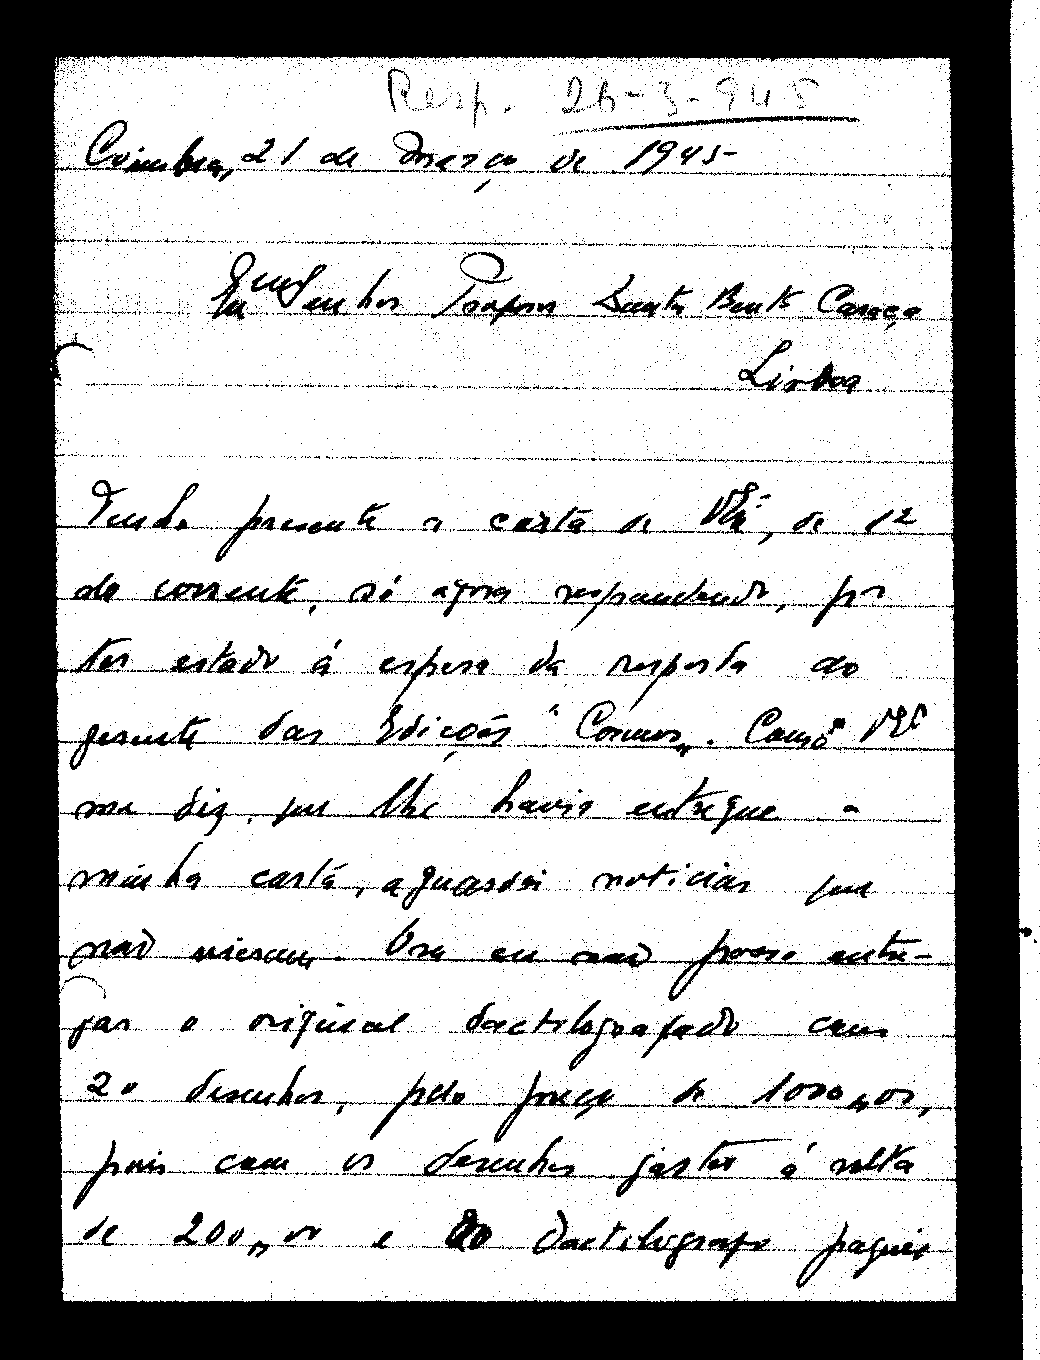 Resp. 26-3-945
Coimbra, 21 de Março de 1945
Senhor Bento Caraça
Lisboa
Tenho presente a carta de V. Ex.ª, de 12
do corrente, só agora respondendo, por
ter estado á espera da resposta do
gerente das Edições "Cosmos„. Como V. Ex.ª
me diz, que lhe havia entregue a
minha carta, aguardei noticias que
não vieram. Ora eu não posso entre-
gar o original dactilografado com
20 desenhos, pelo preço de 1000„00,
pois com os desenhos gastei á volta
de 200„00 e ao dactilografo paguei